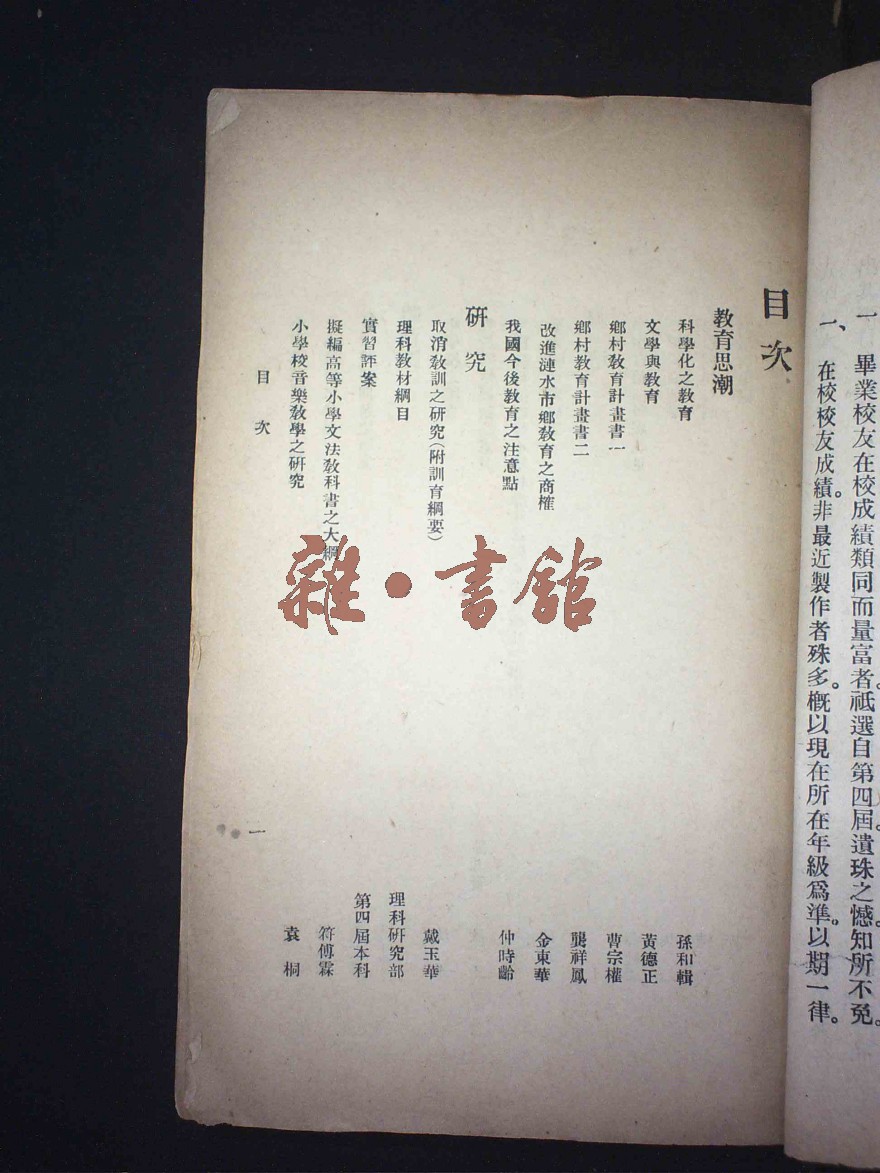 一 畢業校友在校成績類同而量富者。祗選自第四屆。遺珠之憾。知所不免。
一、在校校友成績。非最近製作者殊多。概以現在所在年級爲準。以期一律。
目次
教育思潮
科學化之教育 孫和輯
文學與教育 黃德正
鄉村教育計畫書一 曹宗權
鄉村教育計畫書二 龔祥鳳
改進漣水市鄉教育之商榷 金東華
我國今後教育之注意點 仲時齡
研究
取消教訓之研究(附訓育綱要) 戴玉華
理科教材綱目 理科研究部
實習評案 第四屆本科
擬編高等小學文法教科書之大綱 符傅霖
小學校音樂教學之研究 袁桐
目次 一
雜·書館